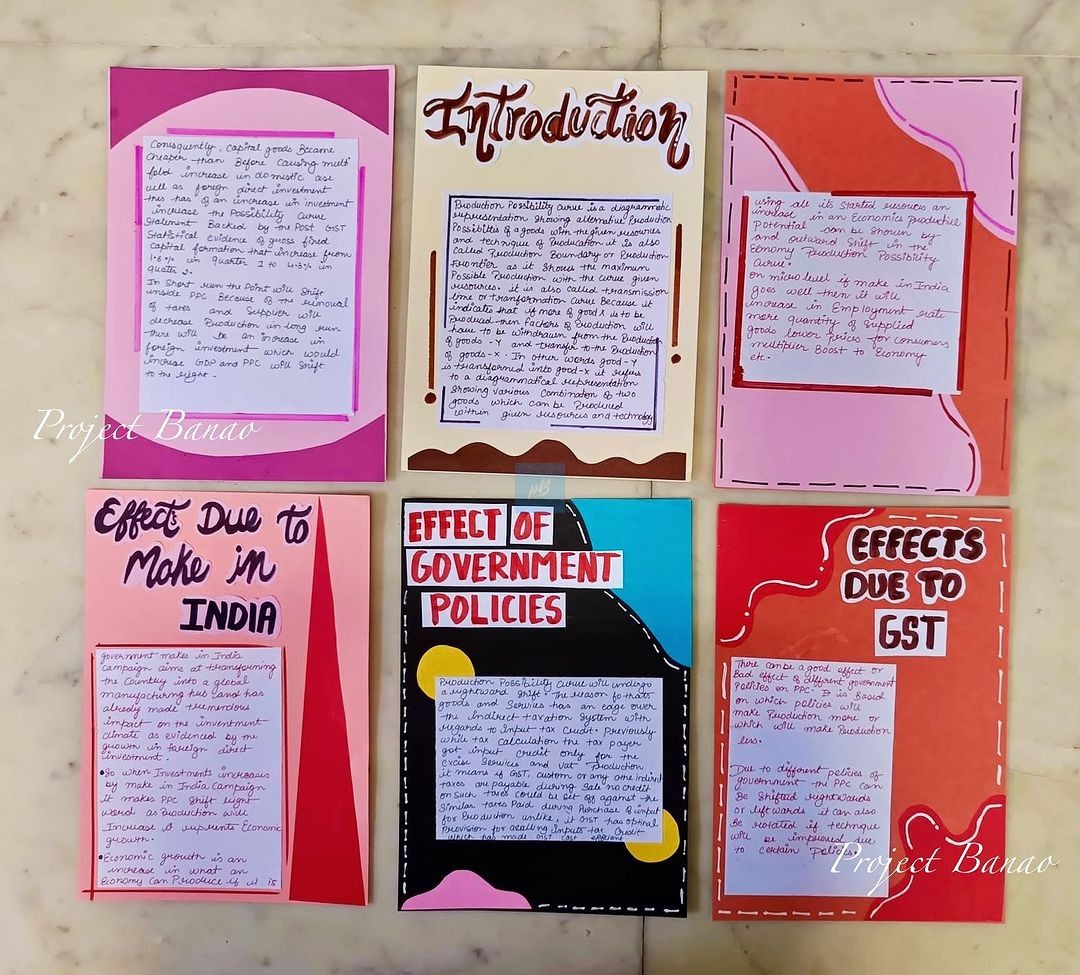 Consequently, Capital goods Became
Cheaper than Before Causing multi
fold increase in domestic ase
well as foreign direct investment
this has of an increase in investment
increase the Possibility Curve
Statement Backed by the Post GST
Statistical evidence of gross fixed
Capital formation that increase from
1.6% in quarter 1 to 4.3% in
quater 2.
In Short run the Point will Shift
inside PPC Because of the removal
of taxes and Supplier will
decrease Production in long run
there will be an increase in
foreign investment which would
increase GDP and PPC will Shift
to the right.
Introduction
Production Possibility Curve is a diagrammatic
representation showing alternative Production
Possibilites of a goods with the given resources
and technique of Production it is also
called Production Boundary or Production
Frontier as it Shows the maximum
Possible Production with the Curve given
resources. it is also called transmission
line or transformation Curve Because it
indicates that if more of good x is to be
Produced then Factors of Production will
have to be withdrawn from the Production
of goods - Y and transfer to the Production
of goods - X. In other words good - Y
is transformed into good-x it refers
to a diagrammatical representation
Showing various Combination of two
goods which can be Produced
within given resources and technology
using all its Started resources an
increase in an Economics Productive
Potential can be Shown by
and outward Shift in the
Economy Production Possibility
Curve.
on micro level if make in India
goes well then it will
increase in Employment rate
more quantity of Supplied
goods lower prices for Consumers
multiplier Boost to Economy
etc.
Project Banao
pB
Effects Due to
Make in
INDIA
government makes in India
Campaign aims at transforming
the Country into a global
manufacturing hub and has
already made tremendous
impact on the investment
climate as evidenced by the
growth in foreign direct
investment.
• So when Investments increases
by make in India Campaign
it makes PPC Shift right
ward as Production will
Increase it reprents Economic
growth.
• Economic growth is an
increase in what an
Economy Can Produce if it is
EFFECT OF
GOVERNMENT
POLICIES
Production Possibility Curve will undergo
a rightward Shift. The reason fo that
goods and Services has an edge over
the indirect taxation System with
regards to input tax Credit. Previously
while tax calculation the tax payer
got input credit only for the
Excise Services and Vat Production
it means if GST, custom or any othe indirect
taxes are payable during Sale no credit
on Such taxes could be Set of against the
Similar taxes Paid during Purchase of input
for Production unlike, it GST has
Provision for input tax Credit
which has made GST Cost efficient
EFFECTS
DUE TO
GST
There can be a good effect or
Bad effect of different government
Policies on PPC. It is Based
on which policies will
make Production more or
which will make Production
less.
Due to different policies of
government the PPC can
Be Shifted rightwards
or leftwards it can also
Be rotated if technique
will be improved due
to certain policies.
Project Banao